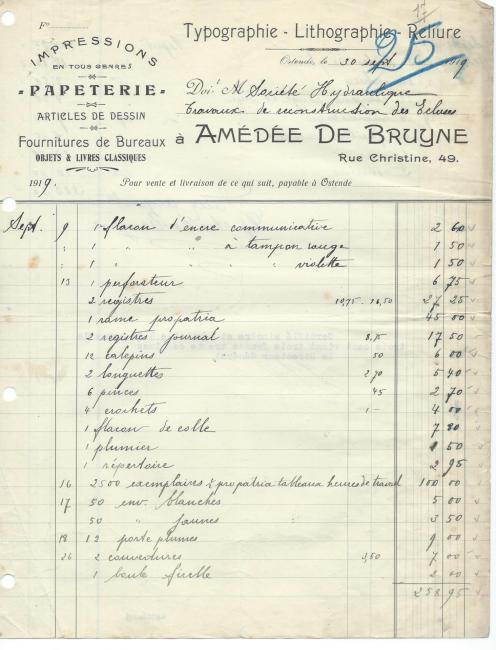 Fº
IMPRESSIONS
EN TOUS GENRES
PAPETERIE
ARTICLES DE DESSIN
Fournitures de Bureaux
OBJETS & LIVRES CLASSIQUES
Typographie - Lithographie - Reliure
25
Ostende, le 30 sept. 1919
Doit M Société Hydraulique
Travaux de reconstruction des Ecluses
à AMÉDÉE DE BRUYNE
Rue Christine, 49.
1919. Pour vente et livraison de ce qui suit, payable à Ostende
Sept. 9 1 flacon d'encre communicative 2 60
" 1 " " à tampon rouge 1 50
" 1 " " " violette 1 50
13 1 perforateur 6 75
2 registres 10,75 - 16,50 27 25
1 rame propatria 45 00
2 registres journal 8,75 17 50
12 calepins 50 6 00
2 longuettes 2,70 5 40
6 pinces 45 2 70
4 crochets 1 - 4 00
1 flacon de colle 7 80
1 plumier 1 50
1 répertoire 2 95
16 2500 exemplaires propatria tableaux heures de travail 100 00
17 50 env. blanches 5 00
50 " jaunes 3 50
18 12 porte plumes 9 00
26 2 couvertures 3,50 7 00
1 boule ficelle 2 00
258 95